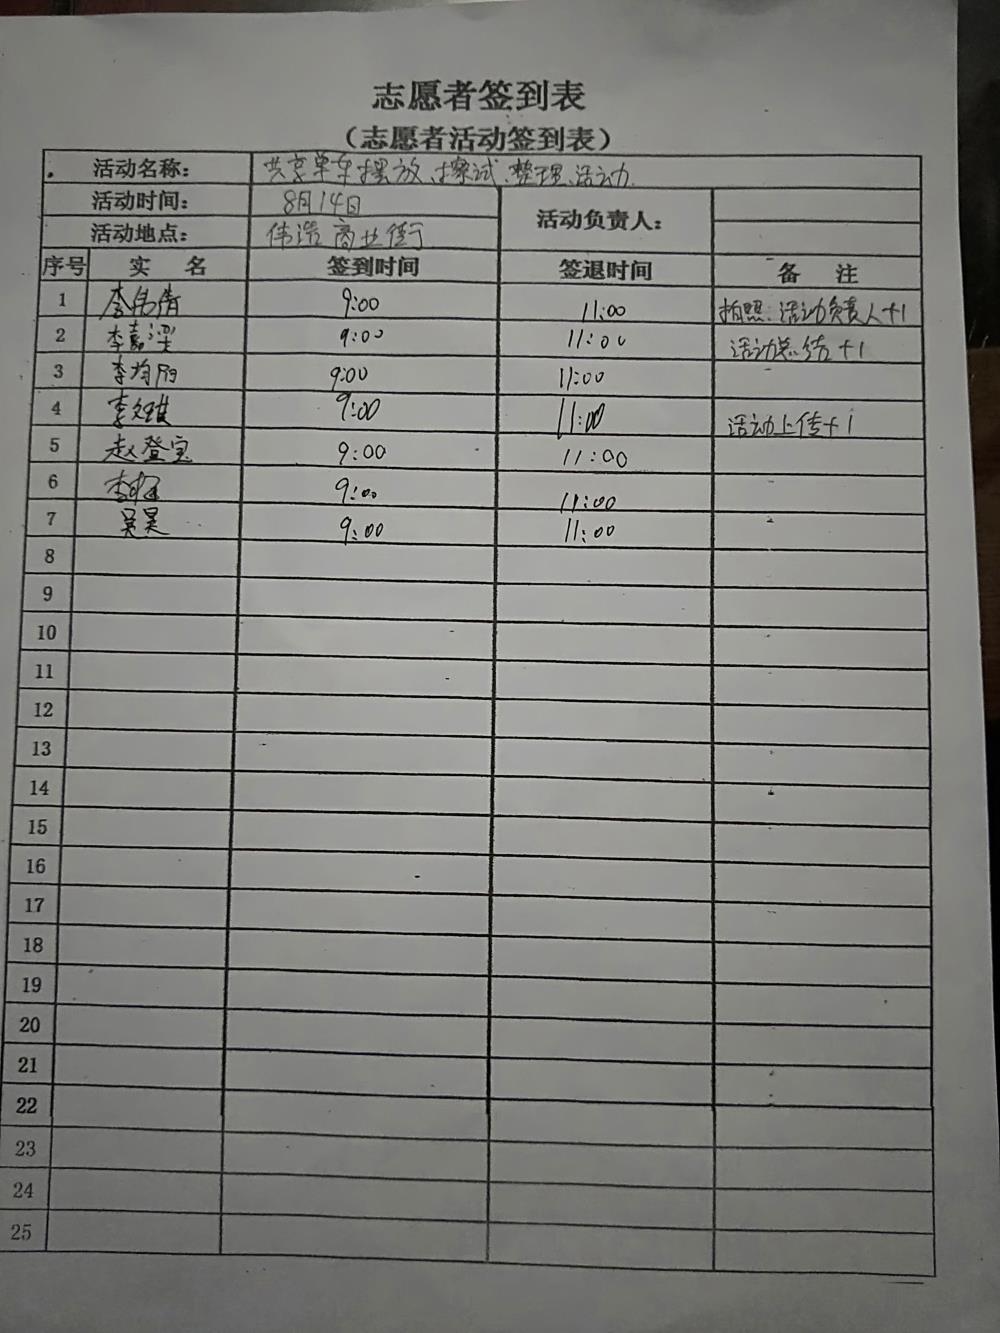 志愿者签到表
（志愿者活动签到表）
活动名称： 共享单车摆放、擦试、整理、活动.
活动时间： 8月14日 活动负责人：
活动地点： 伟浩商业街
序号 实 名 签到时间 签退时间 备 注
1 李伟倩 9:00 11:00 拍照：活动负责人+1
2 李嘉 9:00 11:00 活动总结+1
3 李均 9:00 11:00
4 李 9:00 11:00 活动上传+1
5 赵登宝 9:00 11:00
6 李 9:00 11:00
7 吴昊 9:00 11:00
8
9
10
11
12
13
14
15
16
17
18
19
20
21
22
23
24
25